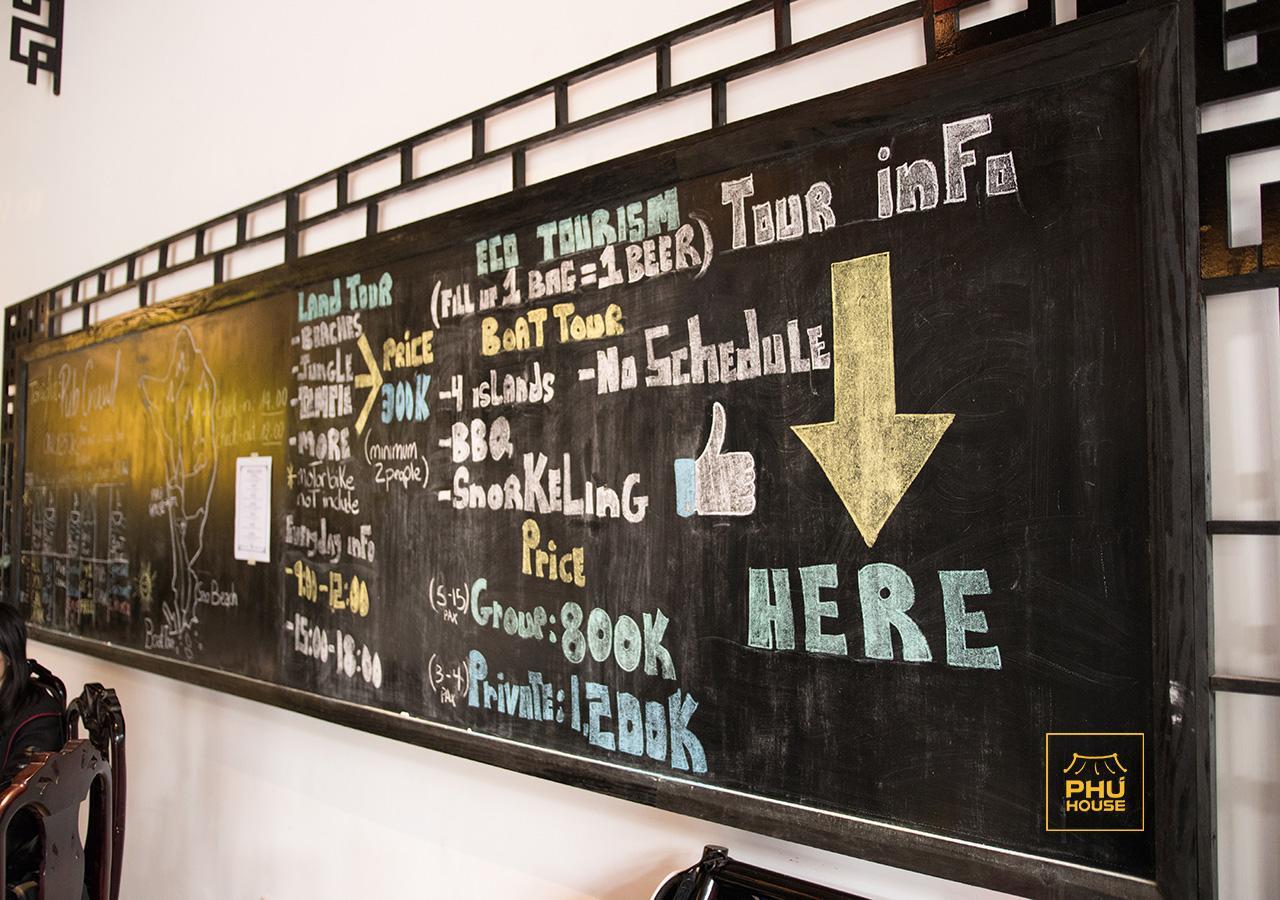 Tour inFo
HERE
ECO TOURISM
(FILL UP 1 BAG = 1 BEER)
BOAT TOUR
-4 ISLANDS
-No SchedulE
-BBQ
-SnorKELInG
Price
(5-15) PAX
Group: 800K
(3-4) PAX
Private: 1,200K
LAnd TOUR
-BEACHES
-JUNGLE
-TEMPLE
-MORE
PRiCE
300K
(minimum
2 people)
*motorbike
not include
Everyday inFo
-9:00-12:00
-15:00-18:00
Pub Crawl
check-in 14.00
check-out 12:00
Sao Beach
PHÚ
HOUSE